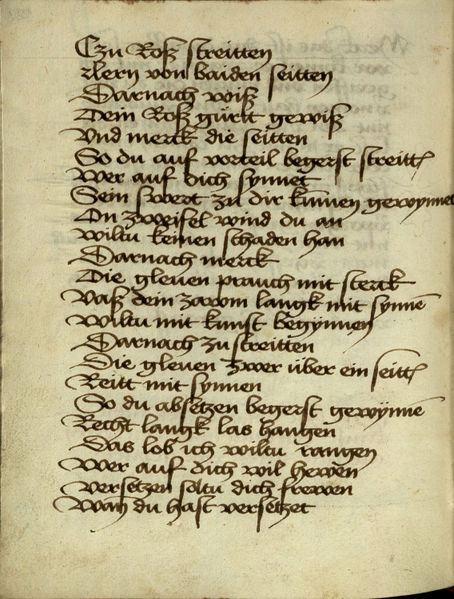 Czu Roß streitten
zlern von baiden seitten
Darnach wiß
Dein Roß gürkt gewiß
Vnd merck die seitten
So du auf vorteil begerst streittn
Wer auf dich synnet
Sein swert zu dir künnen gewynnet
On zweifel wind du an
wiltu keinen schaden han
Darnach merck
Die gleuen prauch mit sterck
Vaß dein zawm langk mit synnē
Wiltu mit kunst begÿnnen
Darnach zu streitten
Die gleuen zwer über ein seittn
Reitt mit synnen
So du absetzen begerst gewÿnnē
Recht langk las hangen
Das lob ich wiltu rangen
Wer auf dich wil hewen
versetzen soltu dich frewen
Wan du hast versetzet